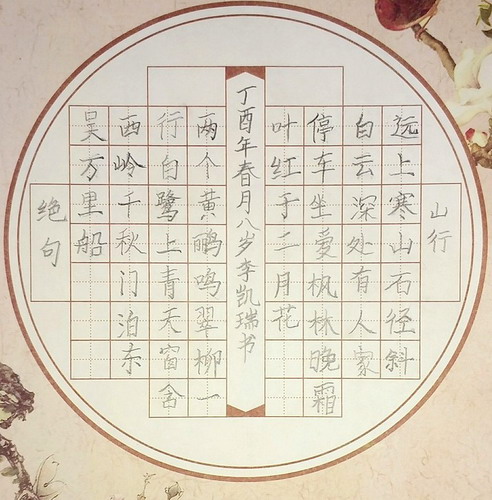 山行
远上寒山石径斜
白云深处有人家
停车坐爱枫林晚霜
叶红于二月花
丁酉年春月八岁李凯瑞书
两个黄鹂鸣翠柳一
行白鹭上青天窗含
西岭千秋门泊东
吴万里船
绝句